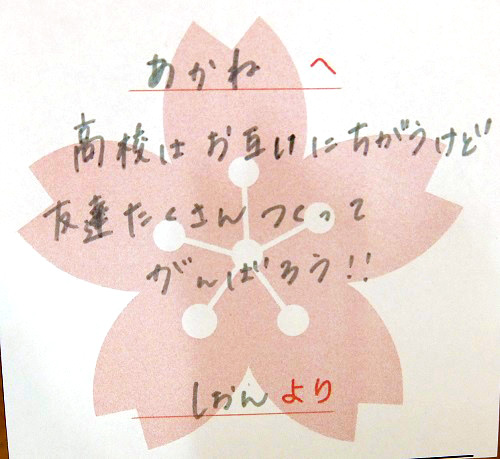 あかね へ
高校はお互いにちがうけど
友達たくさんつくって
がんばろう!!
しおん より